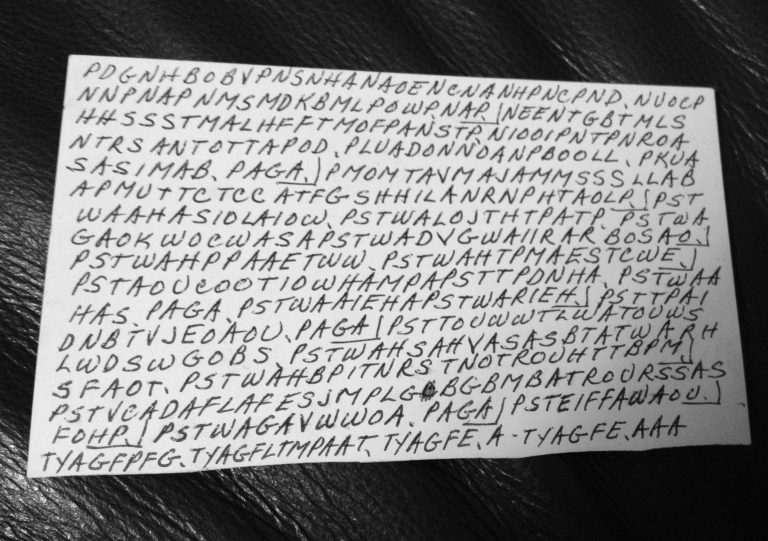 PDGNHBOBVPNSNHANAOENCNANHPNCPND, NUOCP
NNPNAPNMSMDKBMLPOWP, NAP. NEENTGBTMLS
HHSSSTMALHFFTMOFPANSTP, NIOOIPNTPNROA
NTRSANTOTTAPOD, PLUADONNOANPBOOLL, PKUA
SASIMAB, PAGA. PMOMTAVMAJAMMSSSLLAB
APMUTTCTCC ATFGSHHILANRNPHTAOLP. PST
WAAHASIOLAIOW, PSTWALOJTHTPATP, PSTWA
GAOKWOCWASAPSTWADVGWAIIRARBOSAO.
PSTWAHPPAAETWW, PSTWAHTPMAESTCWE.
PSTAOUCOOTIOWHAMPAPSTTPDNHA, PSTWAA
HAS, PAGA, PSTWAAIEHAPSTWARIEH. PSTTPAI
DNBTVJEOAOU, PAGA PSTTOUWWTLWATOUWS
LWDSWGOBS, PSTWAHSAHVASASBTATWARH
SFAOT, PSTWAHBPITNRSTNOTROUHTTBPM
PSTVCADAFLAFESJMPLG BGBMBATROURSSAS
FOHP. PSTWAGAVWWOA, PAGA PSTEIFFAWAOU.
TYAGFPFG, TYAGFLTMPAAT, TYAGFE, A-TYAGFE, AAA